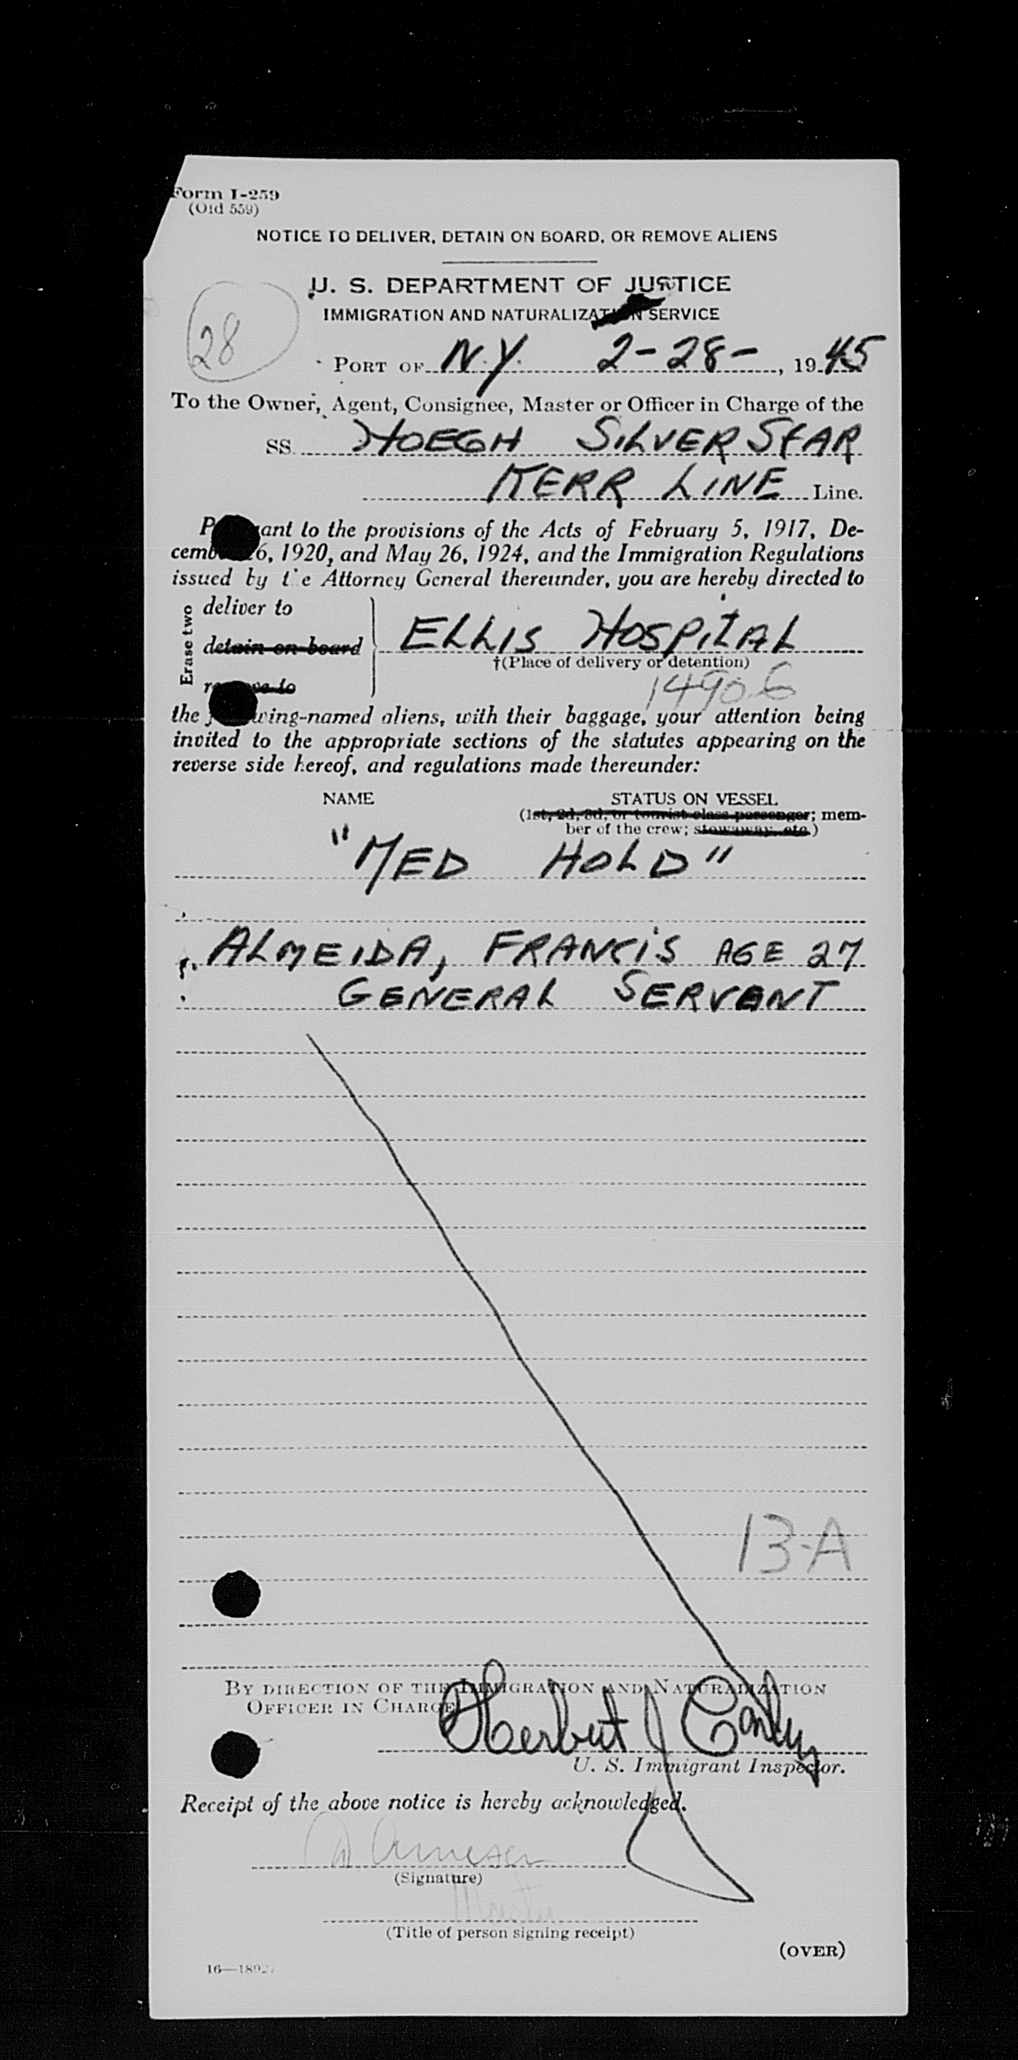 Form I-259
(Old 559)
NOTICE TO DELIVER, DETAIN ON BOARD, OR REMOVE ALIENS
U. S. DEPARTMENT OF JUSTICE
IMMIGRATION AND NATURALIZATION SERVICE
28
PORT OF N.Y. 2-28-, 1945
To the Owner, Agent, Consignee, Master or Officer in Charge of the
SS. HOEGH SILVER STAR
KERR LINE Line.
Pursuant to the provisions of the Acts of February 5, 1917, De-
cember 26, 1920, and May 26, 1924, and the Immigration Regulations
issued by the Attorney General thereunder, you are hereby directed to
Erase two
deliver to
detain on board
remove to
ELLIS HOSPITAL
†(Place of delivery or detention)
14906
the following-named aliens, with their baggage, your attention being
invited to the appropriate sections of the statutes appearing on the
reverse side hereof, and regulations made thereunder:
NAME STATUS ON VESSEL
(1st, 2d, 3d, or tourist class passenger; mem-
ber of the crew; stowaway, etc.)
"MED HOLD"
ALMEIDA, FRANCIS AGE 27
GENERAL SERVANT
13-A
BY DIRECTION OF THE IMMIGRATION AND NATURALIZATION
OFFICER IN CHARGE
Herbert J
U. S. Immigrant Inspector.
Receipt of the above notice is hereby acknowledged.
(Signature)
Master
(Title of person signing receipt)
(OVER)